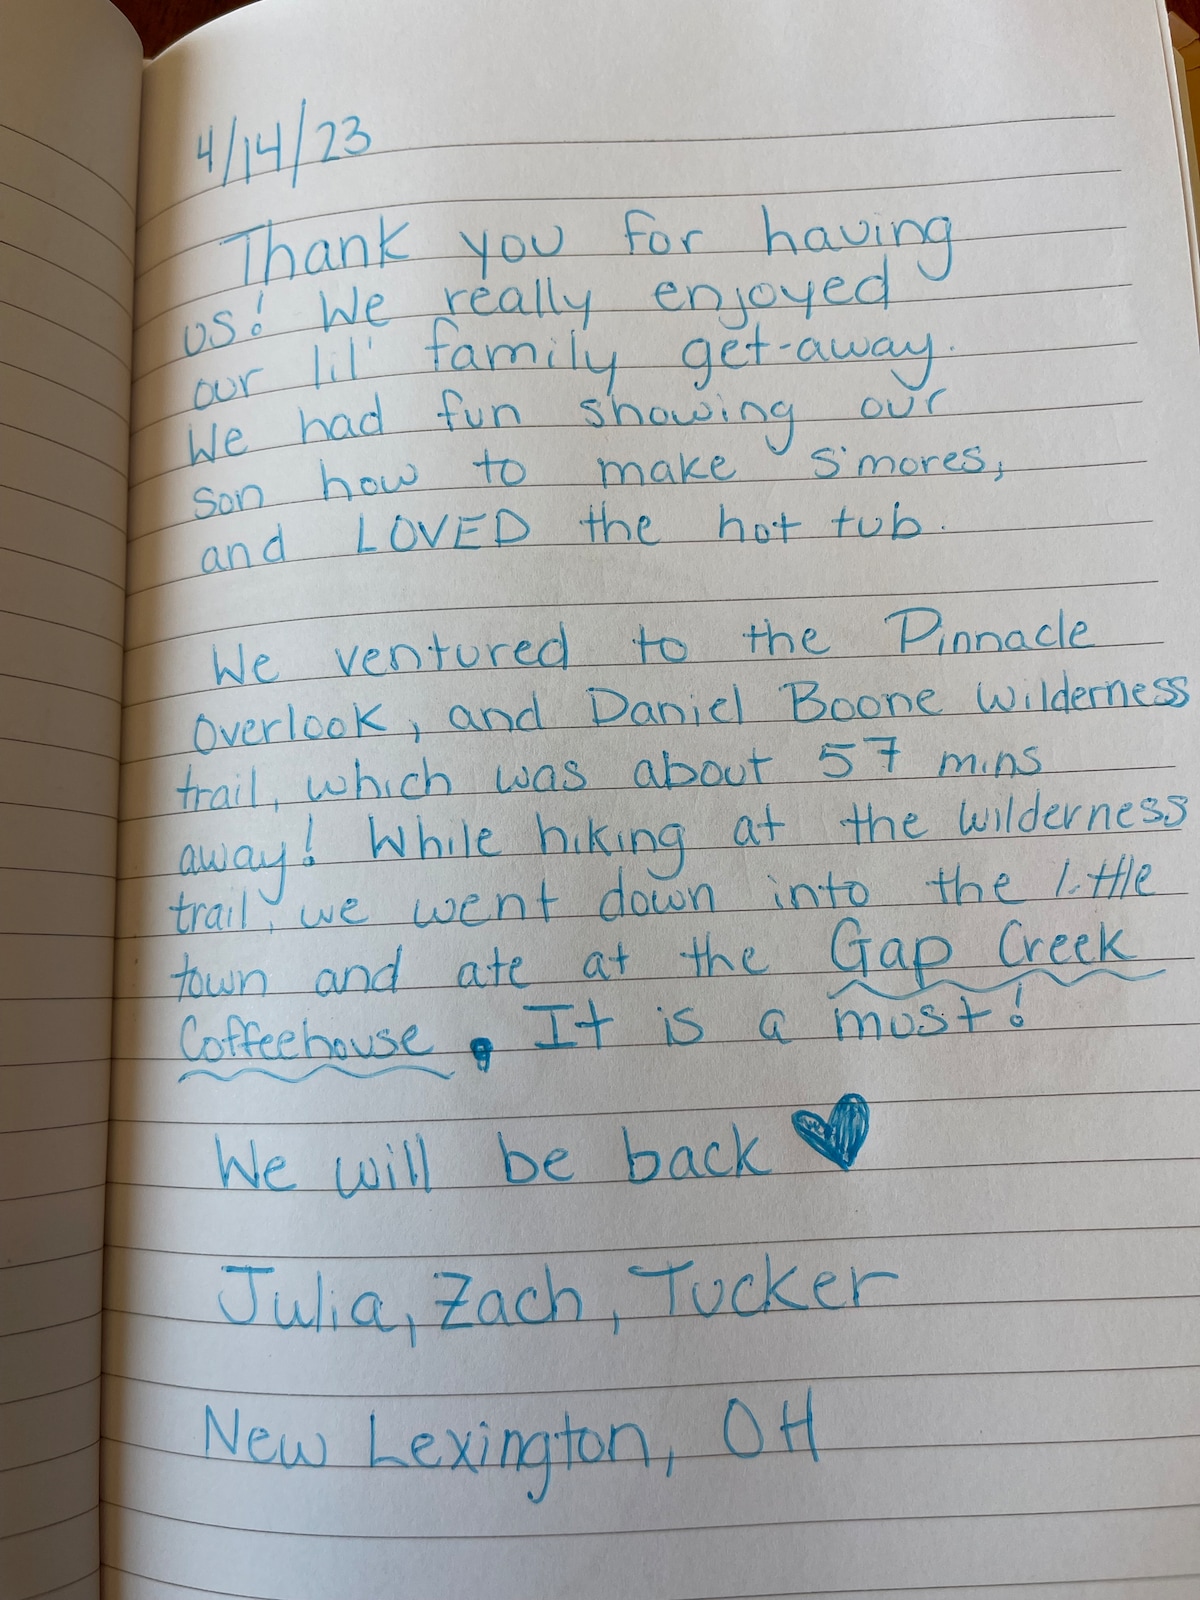 4/14/23
Thank you for having
us! We really enjoyed
our lil' family get-away.
We had fun showing our
son how to make s'mores,
and LOVED the hot tub.
We ventured to the Pinnacle
Overlook, and Daniel Boone Wilderness
trail, which was about 57 mins
away! While hiking at the wilderness
trail, we went down into the little
town and ate at the Gap Creek
Coffeehouse. It is a must!
We will be back ♥
Julia, Zach, Tucker
New Lexington, OH